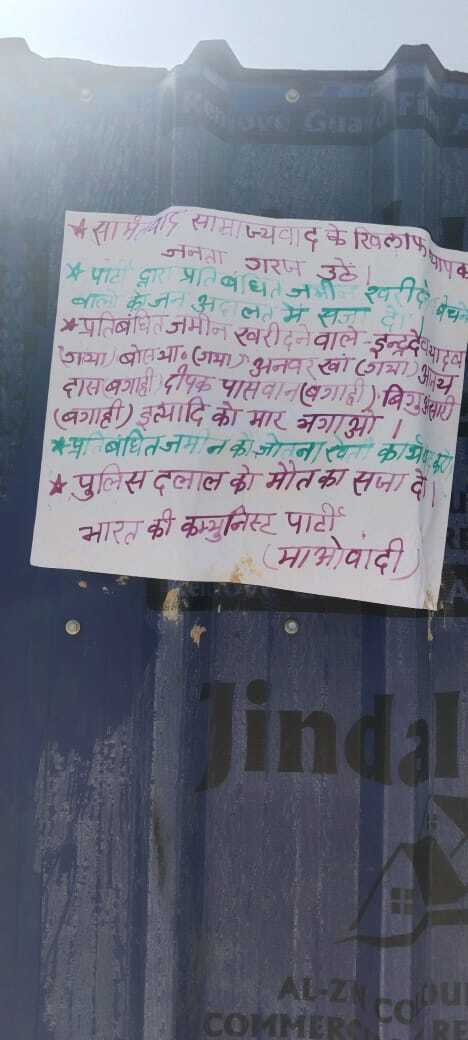 Remove Guard Fi
* सामंतवाद साम्राज्यवाद के खिलाफ व्यापक
जनता गरज उठें।
* पार्टी द्वारा प्रतिबंधित जमीन खरीदने बेचने
वालो को जन अदालत में सजा दो।
* प्रतिबंधित जमीन खरीदने वाले - इन्द्रदेव यादव
(गया) बोस (गया) अनवर खां (गया)
दास (बगाही) दीपक पासवान (बगाही)
(बगाही) इत्यादि को मार भगाओ।
* प्रतिबंधित जमीन का जोतना खेती का
* पुलिस दलाल को मौत का सजा दो।
भारत की कम्युनिस्ट पार्टी
(माओवादी)
Jindal
AL-ZN
COMMERC